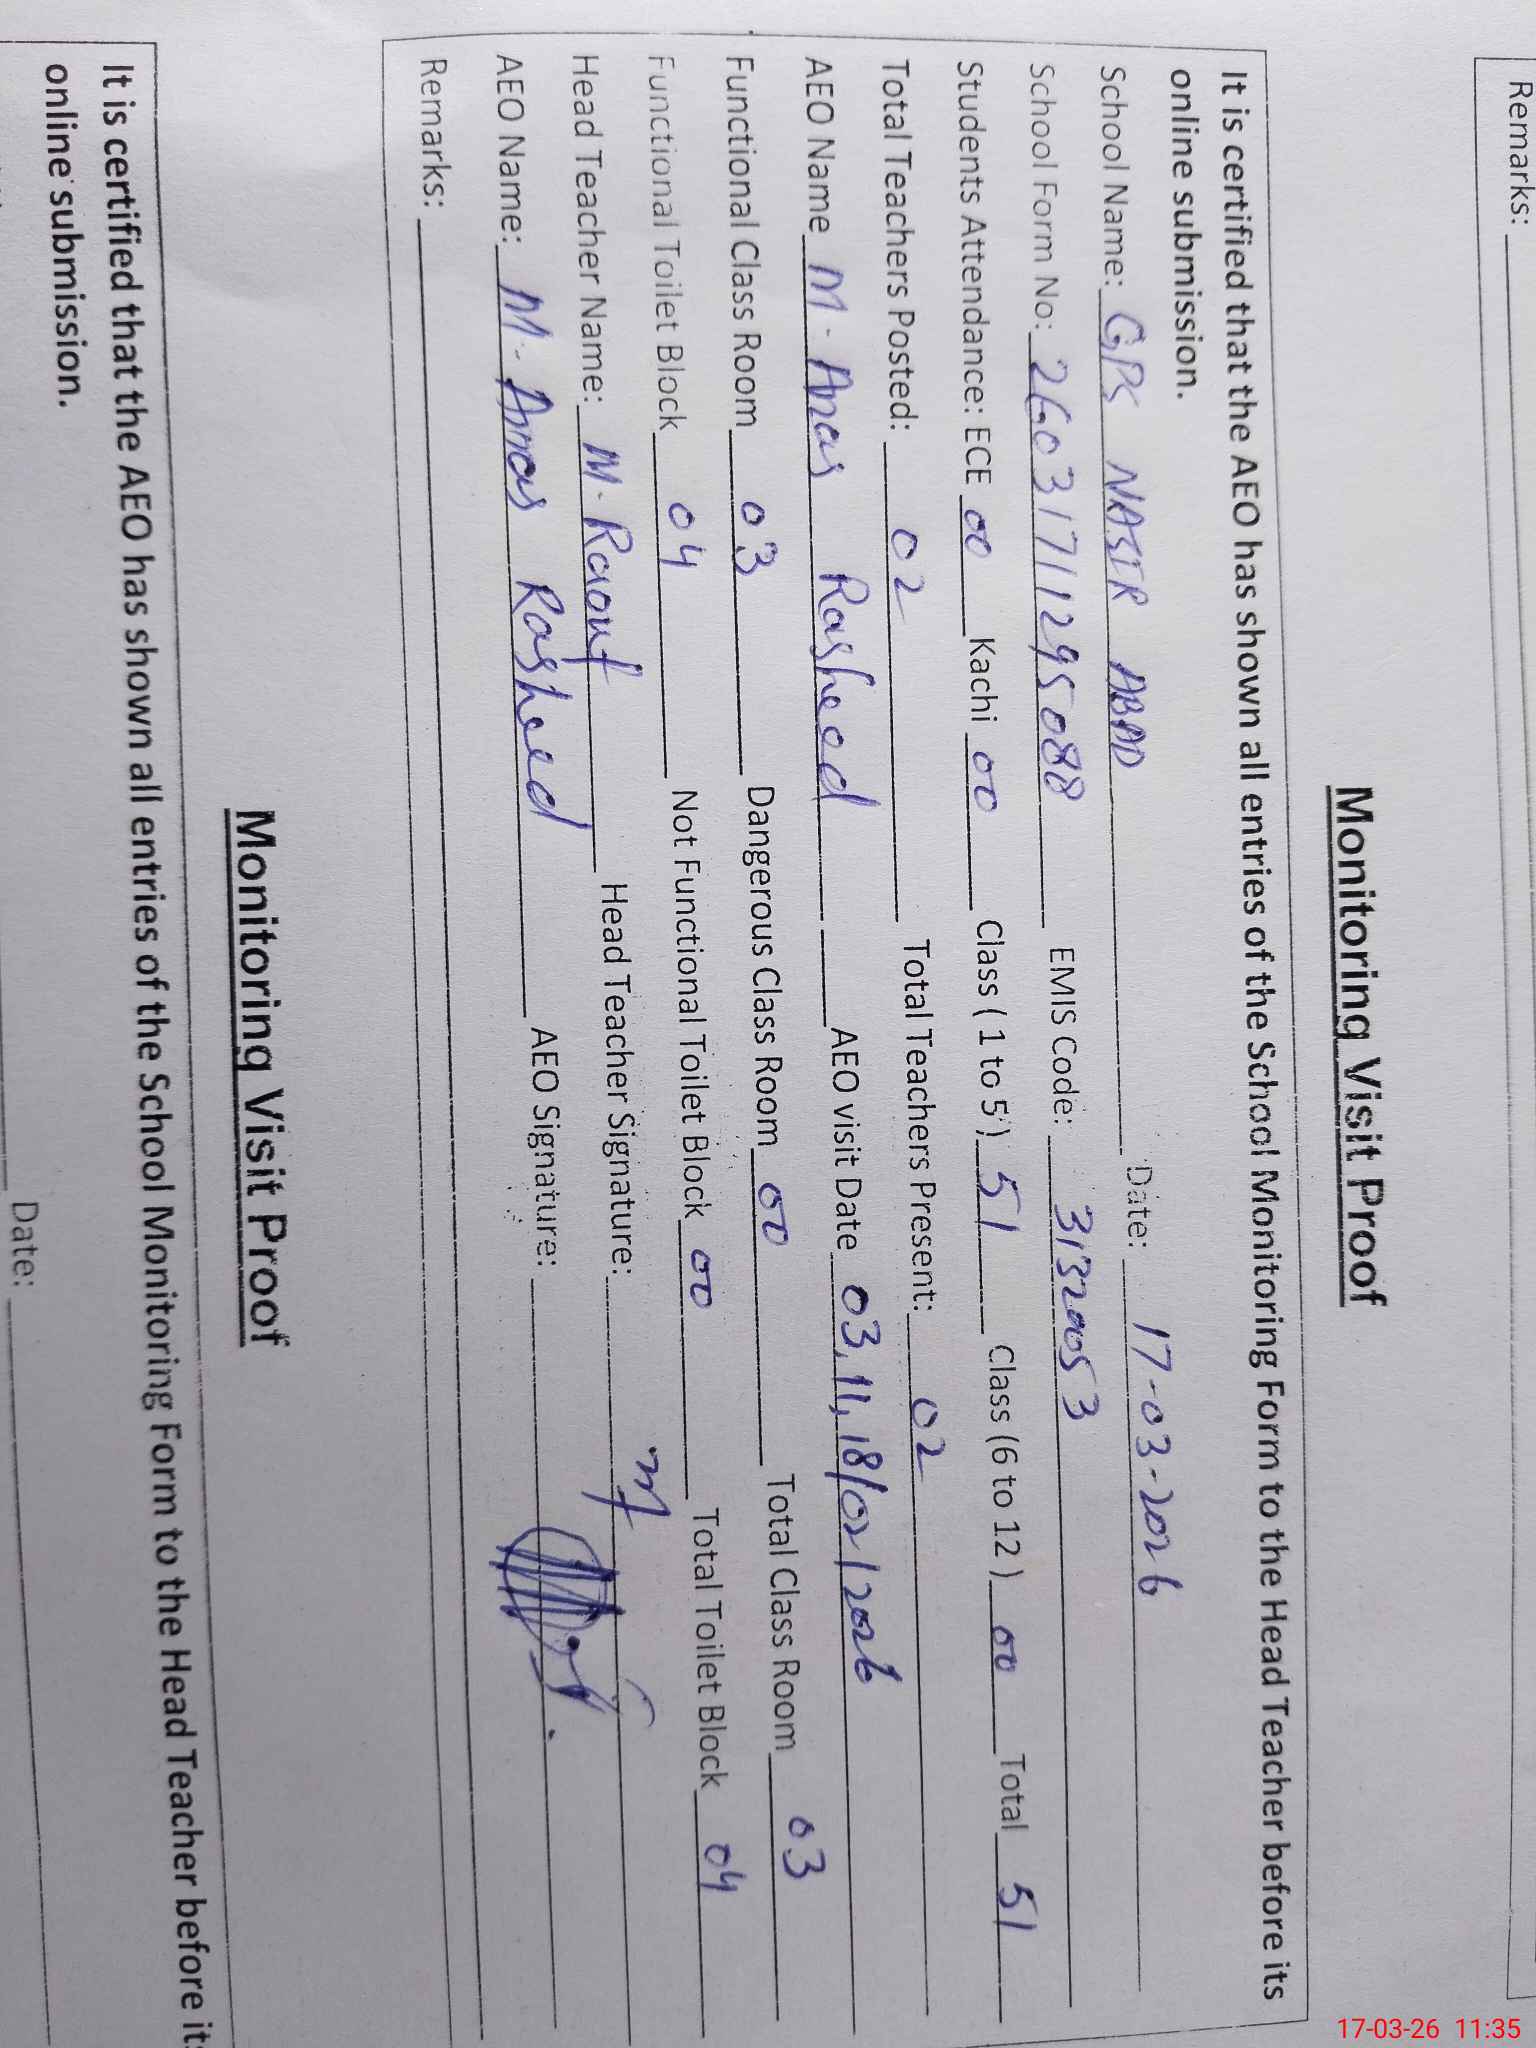 Remarks:
Monitoring Visit Proof
It is certified that the AEO has shown all entries of the School Monitoring Form to the Head Teacher before its
online submission.
School Name: GPS NASIR ABAD Date: 17-03-2026
School Form No: 2603171295088 EMIS Code: 31320053
Students Attendance: ECE 00 Kachi 00 Class ( 1 to 5 ) 51 Class (6 to 12 ) 00 Total 51
Total Teachers Posted: 02 Total Teachers Present: 02
AEO Name M. Anas Rasheed AEO visit Date 03, 11, 18/02/2026
Functional Class Room 03 Dangerous Class Room 00 Total Class Room 03
Functional Toilet Block 04 Not Functional Toilet Block 00 Total Toilet Block 04
Head Teacher Name: M. Raouf Head Teacher Signature:
AEO Name: M. Annas Rasheed AEO Signature:
Remarks:
Monitoring Visit Proof
It is certified that the AEO has shown all entries of the School Monitoring Form to the Head Teacher before its
online submission.
Date:
17-03-26 11:35